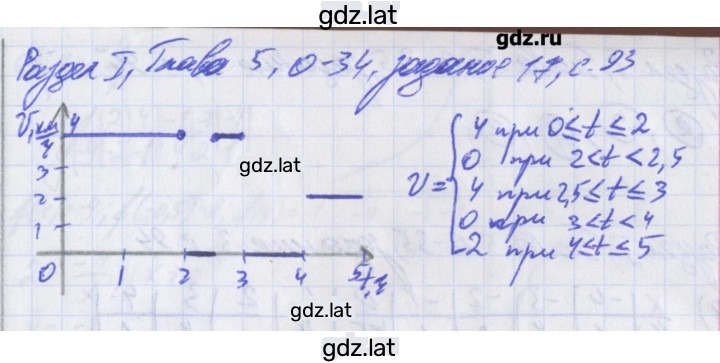 gdz.lat
gdz.lat
Раздел I, Глава 5, О-34, задание 17, с. 93
V, км/ч
4
3
2
1
0 1 2 3 4 5 t, ч
V =
4 при 0≤t≤2
0 при 2<t<2,5
4 при 2,5≤t≤3
0 при 3<t<4
2 при 4≤t≤5
gdz.lat
gdz.lat
gdz.lat